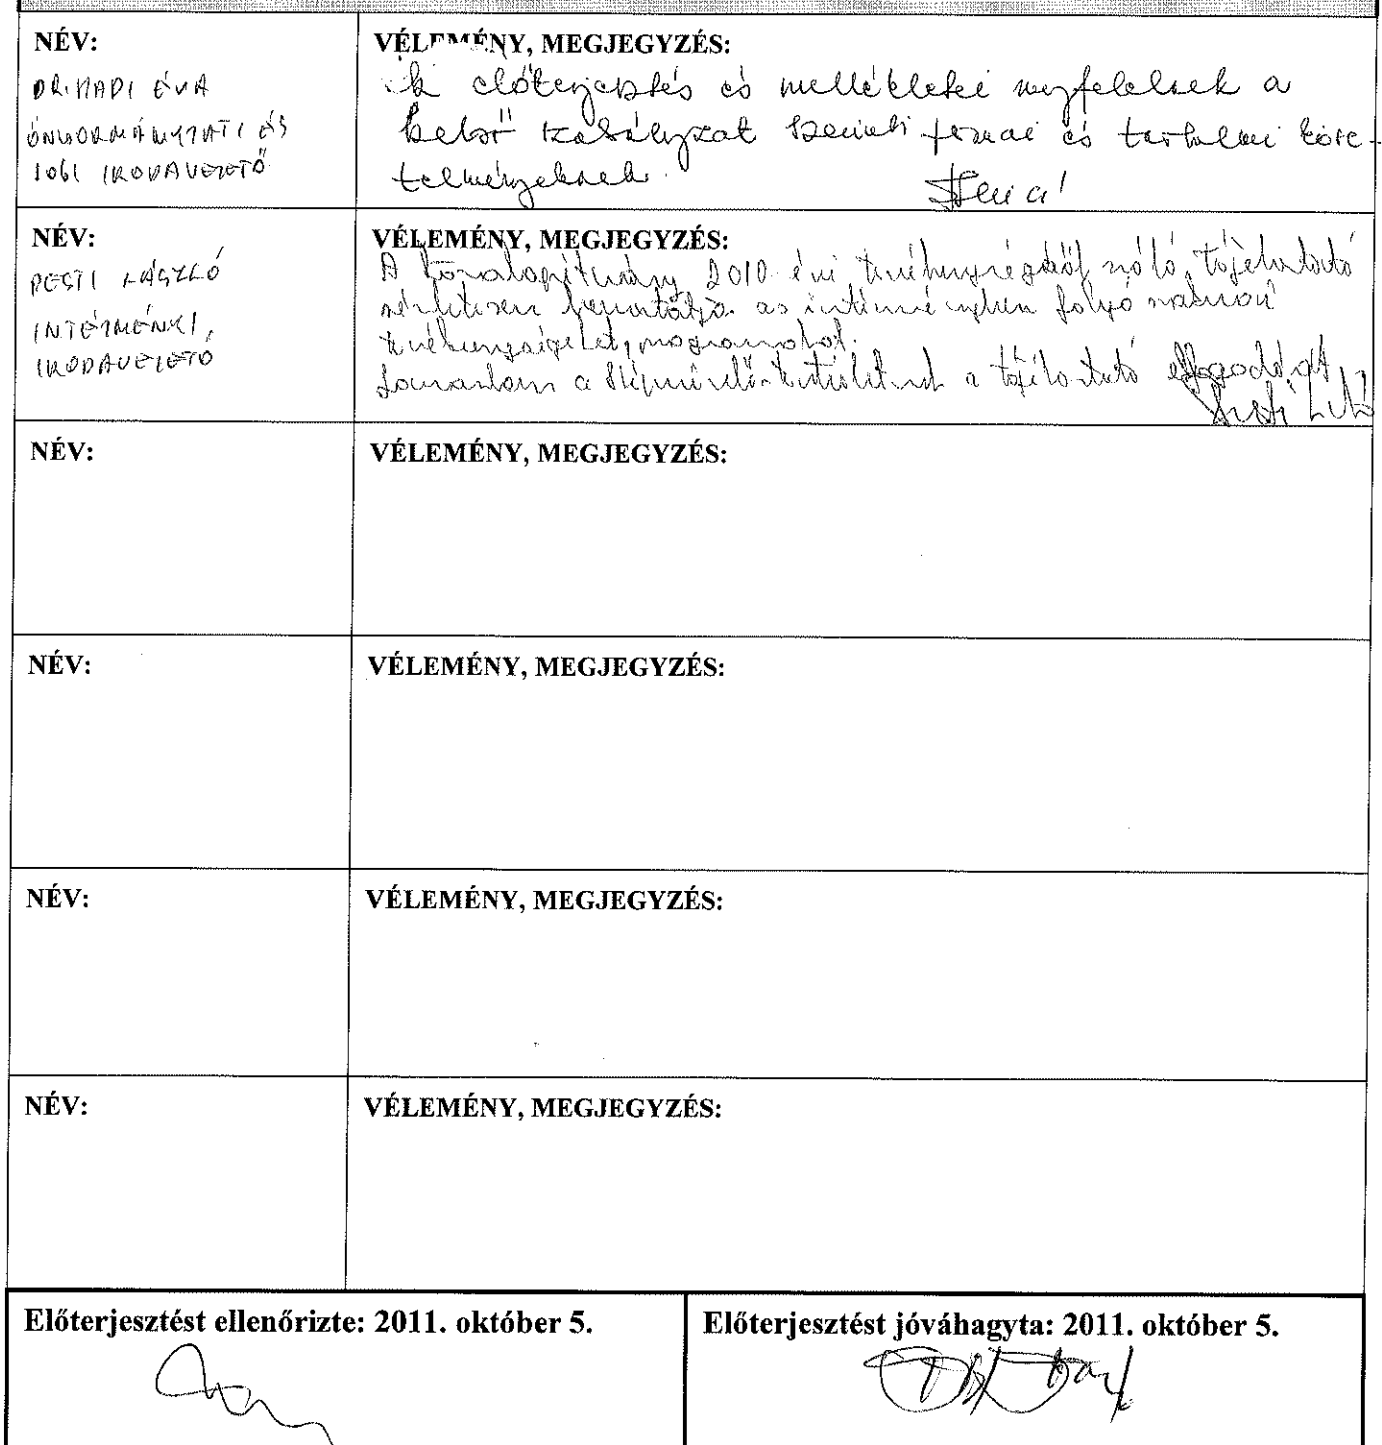 NÉV:
DR. HADI ÉVA
ÖNKORMÁNYZATI ÉS
JOGI IRODAVEZETŐ
VÉLEMÉNY, MEGJEGYZÉS:
előterjesztés és mellékletei megfelelnek a
belső szabályzat szerinti formai és tartalmi köve-
telményeknek.
NÉV:
PESTI LÁSZLÓ
INTÉZMÉNYI
IRODAVEZETŐ
VÉLEMÉNY, MEGJEGYZÉS:
A közalapítvány 2010 évi tevékenységéről szóló tájékoztató
részletesen bemutatja az intézményben folyó szakmai
tevékenységeket, programokat.
Javaslom a Képviselő-testületnek a tájékoztató elfogadását
NÉV:
VÉLEMÉNY, MEGJEGYZÉS:
NÉV:
VÉLEMÉNY, MEGJEGYZÉS:
NÉV:
VÉLEMÉNY, MEGJEGYZÉS:
NÉV:
VÉLEMÉNY, MEGJEGYZÉS:
Előterjesztést ellenőrizte: 2011. október 5.
Előterjesztést jóváhagyta: 2011. október 5.